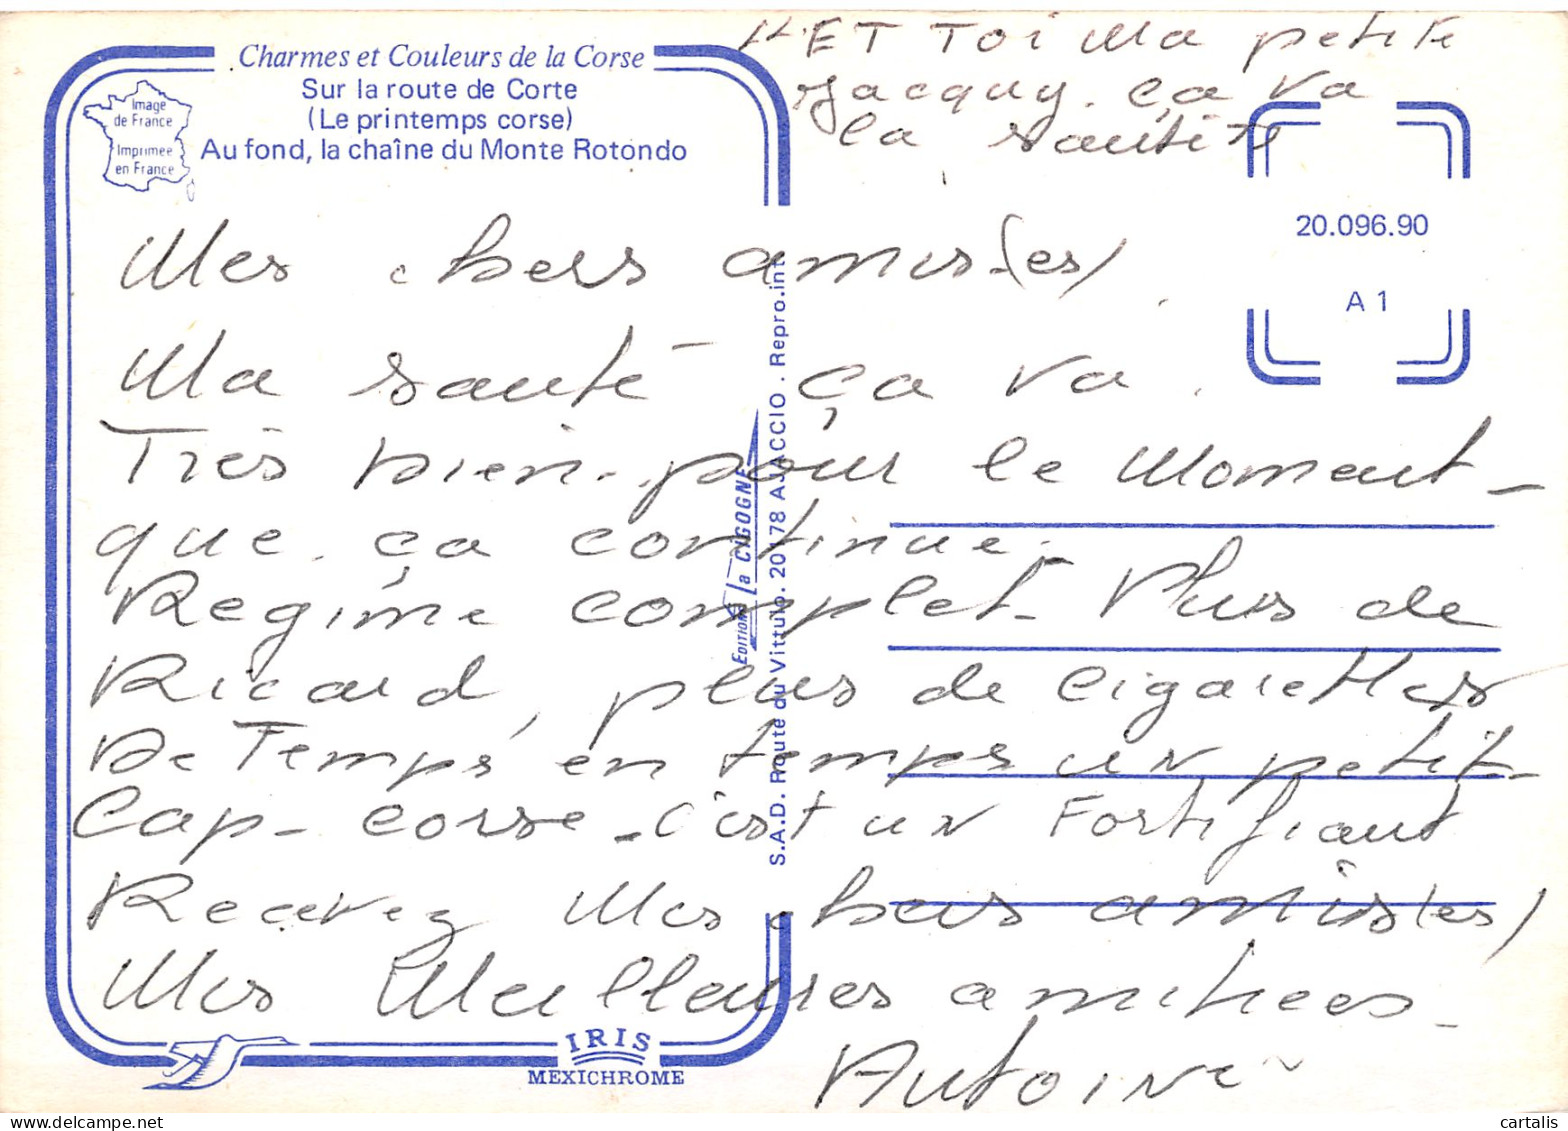 Charmes et Couleurs de la Corse
Sur la route de Corte
(Le printemps corse)
Au fond, la chaîne du Monte Rotondo
Image
de France
Imprimée
en France
ET Toi Ma petite
Jacquy. ça va
la santité
20.096.90
A 1
Mes chers amis-(es)
Ma santé ça va.
Très bien-pour le Moment-
que ça continue.
Regime complet- Plus de
Ricard, plus de cigarettes
De Temps en temps un petit-
Cap-corse-c'est un Fortifiant
Recevez Mes chers amis(es)
Mes Meilleures amitiees-
Antoine
EDITIONS la CIGOGNE
S.A.D. Route du Vittulo. 20178 AJACCIO. Repro.int.
IRIS
MEXICHROME
cartalis